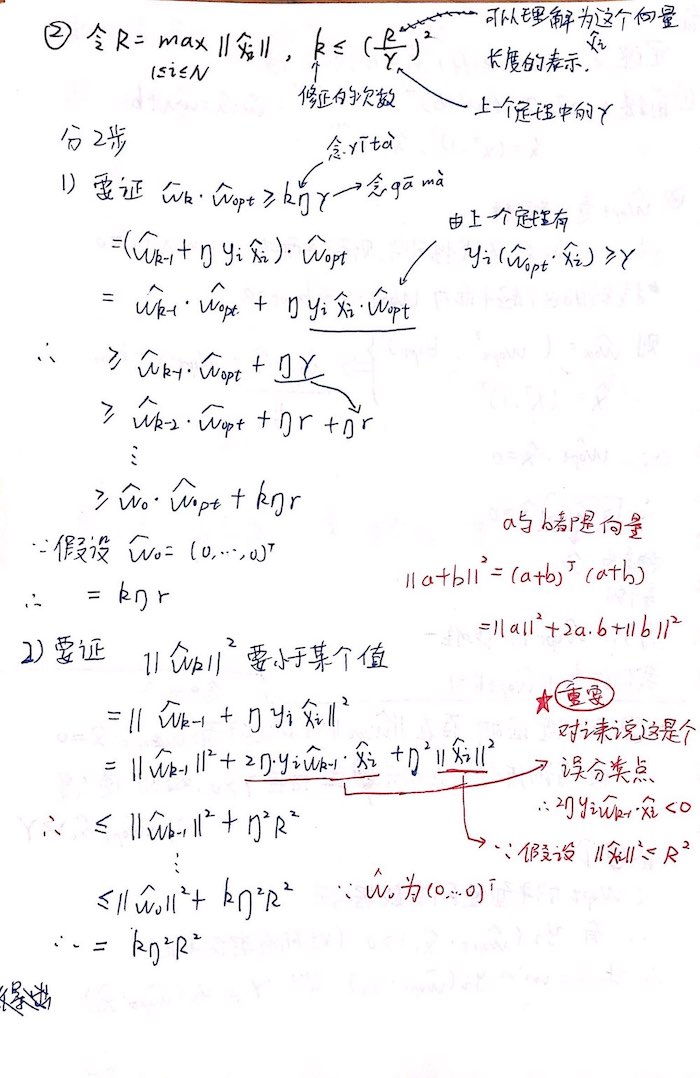 ② 令 R = max ‖x̂i‖ , k ≤ (R/γ)²
1≤i≤N
可以理解为这个向量 x̂i
长度的表示.
修正的次数
上一个定理中的γ
分2步
念 yī tà
1) 要证 ŵk · ŵopt ≥ kηγ → 念 gā mà
= (ŵk-1 + η yi x̂i) · ŵopt
由上一个定理有
yi (ŵopt · x̂i) ≥ γ
= ŵk-1 · ŵopt + η yi x̂i · ŵopt
∴ ≥ ŵk-1 · ŵopt + ηγ
≥ ŵk-2 · ŵopt + ηr + ηr
⋮
≥ ŵ0 · ŵopt + kηr
∵ 假设 ŵ0 = (0,…,0)ᵀ
∴ = kηr
a与b都是向量
‖a+b‖² = (a+b)ᵀ (a+b)
= ‖a‖² + 2a.b + ‖b‖²
2) 要证 ‖ŵk‖² 要小于某个值
= ‖ŵk-1 + η yi x̂i‖²
= ‖ŵk-1‖² + 2η·yi ŵk-1 · x̂i + η² ‖x̂i‖²
★ 重要
对i来说这是个
误分类点
∴ 2η yi ŵk-1 · x̂i < 0
∵ 假设 ‖x̂i‖² ≤ R²
∴ ≤ ‖ŵk-1‖² + η²R²
⋮
≤ ‖ŵ0‖² + kη²R² ∵ ŵ0 为 (0…0)ᵀ
∴ = kη²R²
得出